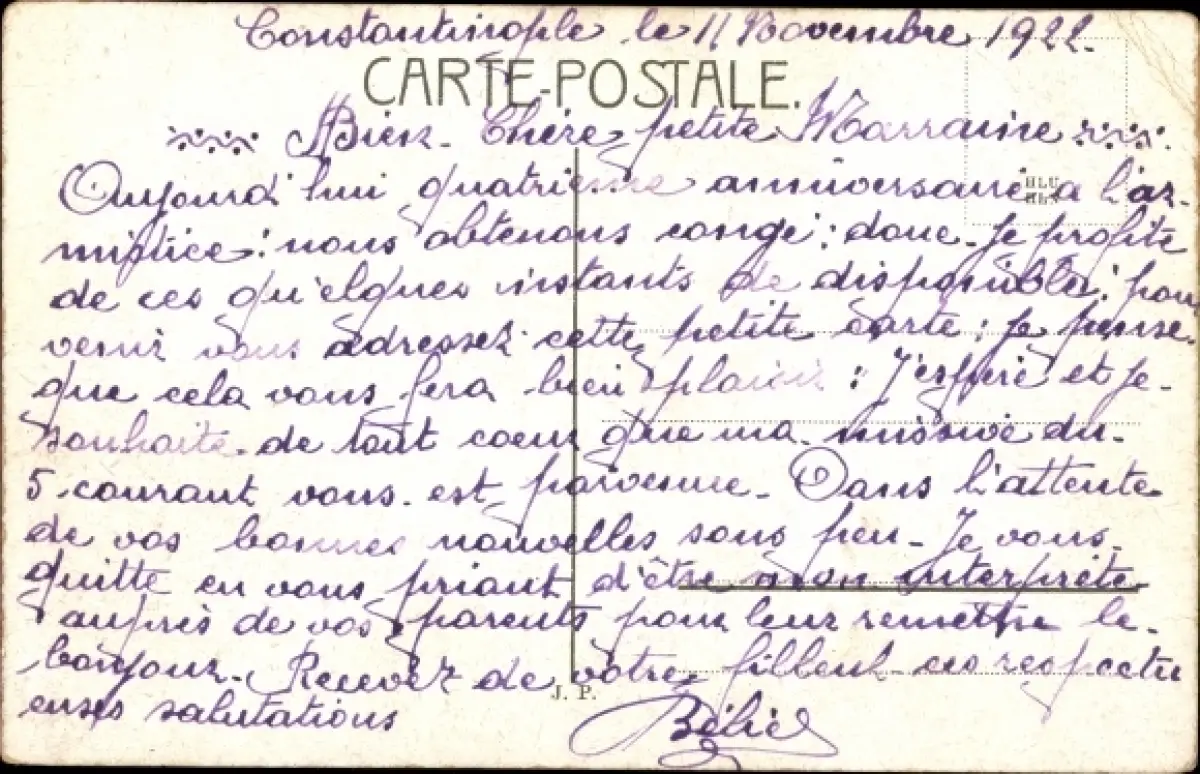 Constantinople le 11 Novembre 1922.
CARTE-POSTALE.
Bien Chère petite Marraine
Aujourd'hui quatrième anniversaire a l'ar-
mistice: nous obtenons congé: donc je profite
de ces qu'elques instants de disponible: pour
venir vous adressez cette petite carte: je pense
que cela vous fera bien plaisir: J'espère et je
souhaite de tout coeur que ma missive du
5 courant vous est parvenue. Dans l'attente
de vos bonnes nouvelles sous peu. Je vous
quitte en vous priant d'être mon interprète
aupris de vos parents pour leur remettre le
bonjour. Recevez de votre filleul ces respectu
euses salutations
J. P.